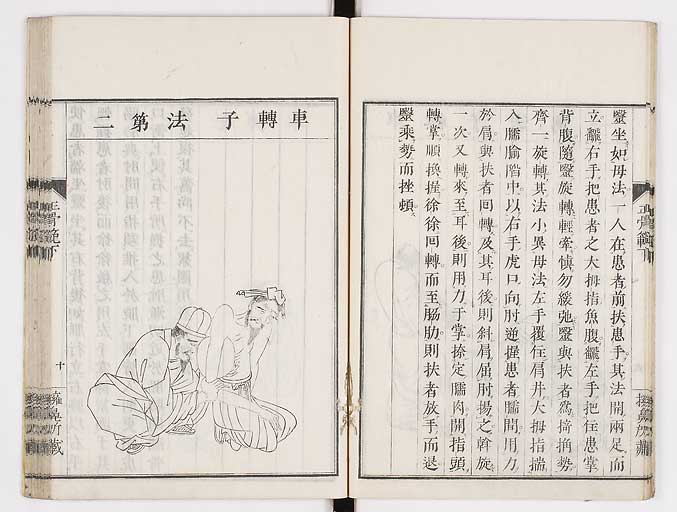 毉坐如母法一人在患者前扶患手其法開兩足而
立麤右手把患者之大拇指魚腹麤左手把住患掌
背腹隨毉旋轉輕牽慎勿緩弛毉與扶者為掎角勢
齊一旋轉其法小異母法左手覆住肩井大拇指揣
入臑腧䐃中以右手虎口向肘逆握患者臑間用力
於肩與扶者回轉及其耳後則斜肩屈肘揚之斡旋
一次又轉來至耳後則用力于掌捺定臑肉開指頭
轉掌順換握徐徐回轉而至肋則扶者放手而退
毉乘勢而挫頓
車轉子法第二